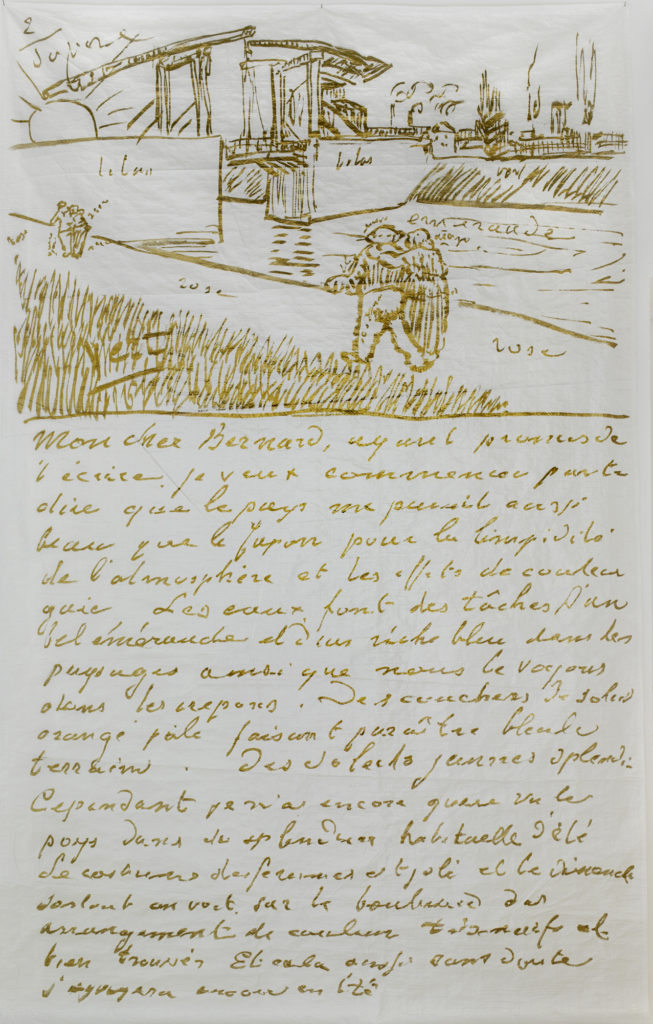 2
lilas
lilas
vert
emeraude
rose
rose
vert
Mon cher Bernard, ayant promis de
t'écrire je veux commencer par te
dire que le pays me parait aussi
beau que le Japon pour la limpidité
de l'atmosphère et les effets de couleur
gaie Les eaux font des tâches d'un
bel émeraude et d'un riche bleu dans les
paysages ainsi que nous le voyons
dans les crepons. Des couchers de soleil
orangé pâle faisant paraître bleu le
terrain. Des soleils jaunes splendi-
Cependant je n'ai encore guere vu le
pays dans sa splendeur habituelle d'été
Le costume des femmes est joli et le dimanche
surtout on voit sur le boulevard des
arrangements de couleur très naifs et
bien trouvés Et cela aussi sans doute
s'egayera encore en l'été